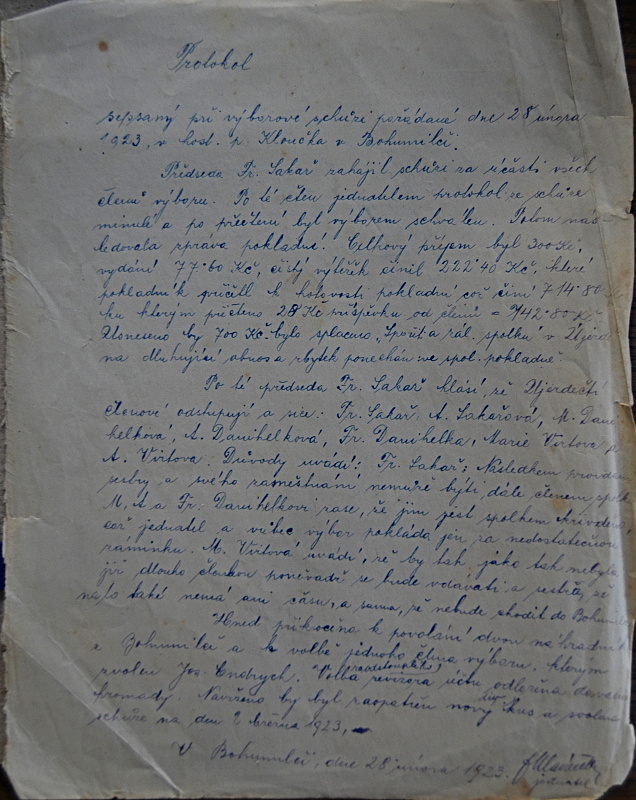 Protokol
sepsaný při výborové schůzi pořádané dne 28 února
1923, v host. p. Kloučka v Bohumilči.
Předseda Fr. Sakař zahájil schůzi za účasti všech
členů výboru. Po té čten jednatelem protokol ze schůze
minulé a po přečtení byl výborem schválen. Potom nás-
ledovala zpráva pokladní. Celkový příjem byl 300 Kč,
vydání 77·60 Kč, čistý výtěžek činil 222·40 Kč, které
pokladník přičetl k hotovosti pokladní což činí 714·80
ku kterým přičteno 28 Kč příspěvku od členů = 742·80 Kč
Usneseno by 700 Kč bylo splaceno Spořit. a zál. spolku v Újezd
na dlužující obnos a zbytek ponechán ve spol. pokladně.
Po té předseda Fr. Sakař hlásí, že Újezdečtí
členové odstupují a sice: Fr. Sakař, A. Sakařová, M. Dani
helková, A. Danihelková, Fr. Danihelka, Marie Virtova
A. Virtova. Důvody uvádí: Fr. Sakař: Následkem
sestry a svého zaměstnání nemůže býti dále členem spolk
M, A a Fr: Danihelkovi zase, že jim jest spolkem křivděno,
což jednatel a vůbec výbor pokládá jen za nedostatečnou
záminku. M. Virtova uvádí, že by tak jako tak nebyla
již dlouho členkou poněvadž se bude vdávati a sestra, že
na to také nemá ani času, a sama, že nebude chodit do Bohumilč
Hned přikročeno k povolání dvou náhradníků
z Bohumilče a k volbě jednoho člena výboru, kterým
zvolen Jos. Endrych. Volba revizora účtů odložena do valné
hromady. Navrženo by byl zaopatřen nový kus a svolána
schůze na den 2 března 1923,
V Bohumilči, dne 28 února 1923.
jednatel